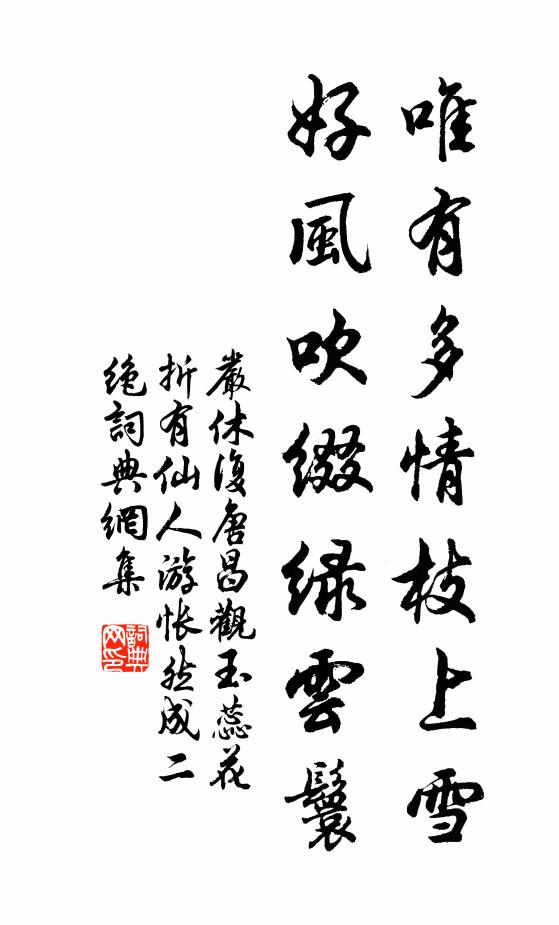 唯有多情枝上雪
好風吹綴緑雲鬟
嚴休復唐昌觀玉蕊花
折有仙人游悵然成二
絶詞典網集
詞典
网印